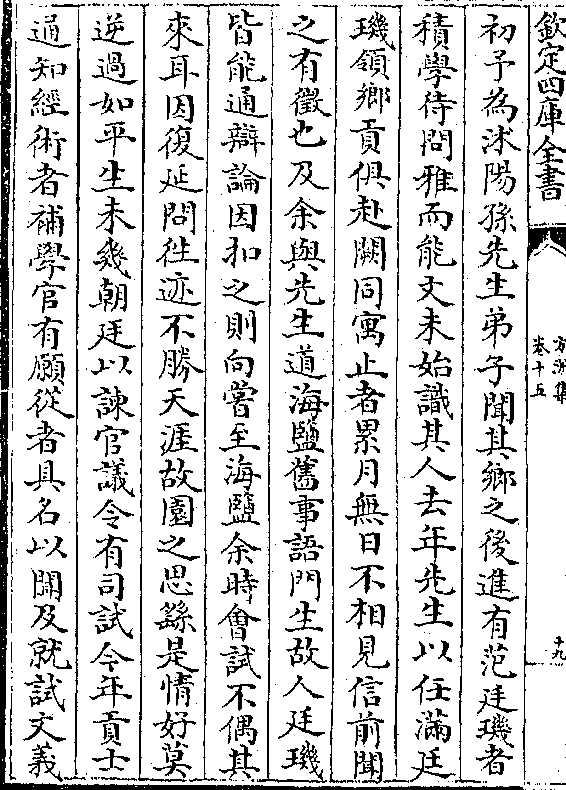 欽定四庫全書
方洲集
卷十五
十九
初予為沭陽孫先生弟子聞其鄉之後進有范廷璣者
積學待問雅而能文未始識其人去年先生以任滿廷
璣領鄉貢俱赴闕同寓止者累月無日不相見信前聞
之有徵也及余與先生道海鹽舊事語門生故人廷璣
皆能通辯論因扣之則向嘗至海鹽余時會試不偶其
來耳因復延問徃迹不勝天涯故園之思繇是情好莫
逆過如平生未幾朝廷以諫官議令有司試今年貢士
通知經術者補學官有願從者具名以聞及就試文義